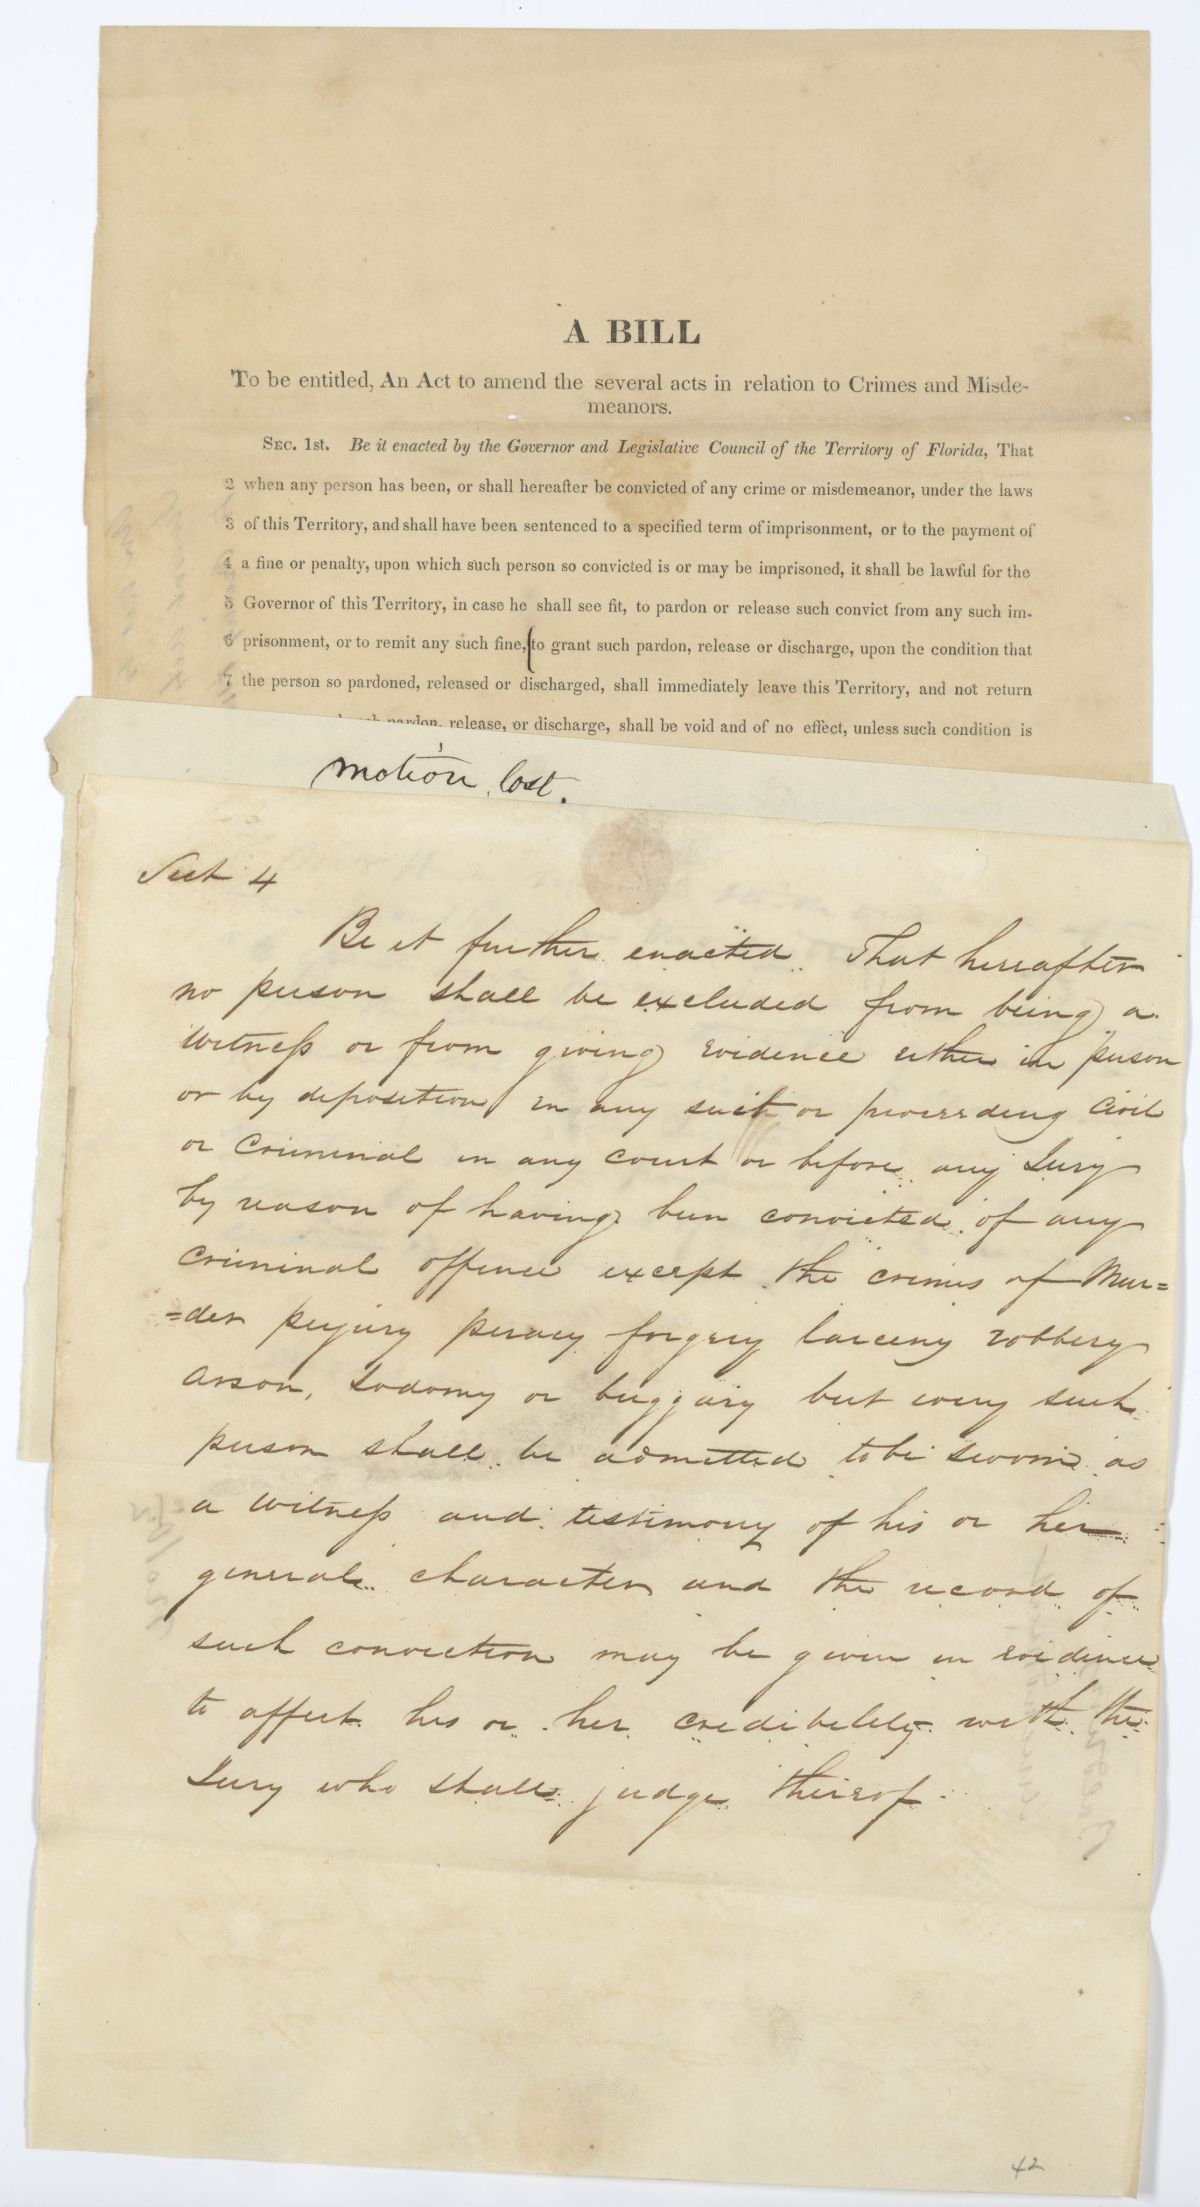 A BILL
To be entitled, An Act to amend the several acts in relation to Crimes and Misde-
meanors.
SEC. 1st. Be it enacted by the Governor and Legislative Council of the Territory of Florida, That
2 when any person has been, or shall hereafter be convicted of any crime or misdemeanor, under the laws
3 of this Territory, and shall have been sentenced to a specified term of imprisonment, or to the payment of
4 a fine or penalty, upon which such person so convicted is or may be imprisoned, it shall be lawful for the
5 Governor of this Territory, in case he shall see fit, to pardon or release such convict from any such im-
6 prisonment, or to remit any such fine, to grant such pardon, release or discharge, upon the condition that
7 the person so pardoned, released or discharged, shall immediately leave this Territory, and not return
pardon, release, or discharge, shall be void and of no effect, unless such condition is
motion lost.
Sect 4
Be it further enacted That hereafter
no person shall be excluded from being a
witness or from giving evidence either in person
or by deposition in any suit or proceeding civil
or criminal in any court or before any Jury
by reason of having been convicted of any
criminal offence except the crimes of Mur=
=der perjury piracy forgery larceny robbery
arson, Sodomy or buggary but every such
person shall be admitted to be sworn as
a witness and testimony of his or her
general character and the record of
such conviction may be given in evidence
to affect his or her credibility with the
Jury who shall judge thereof.
42